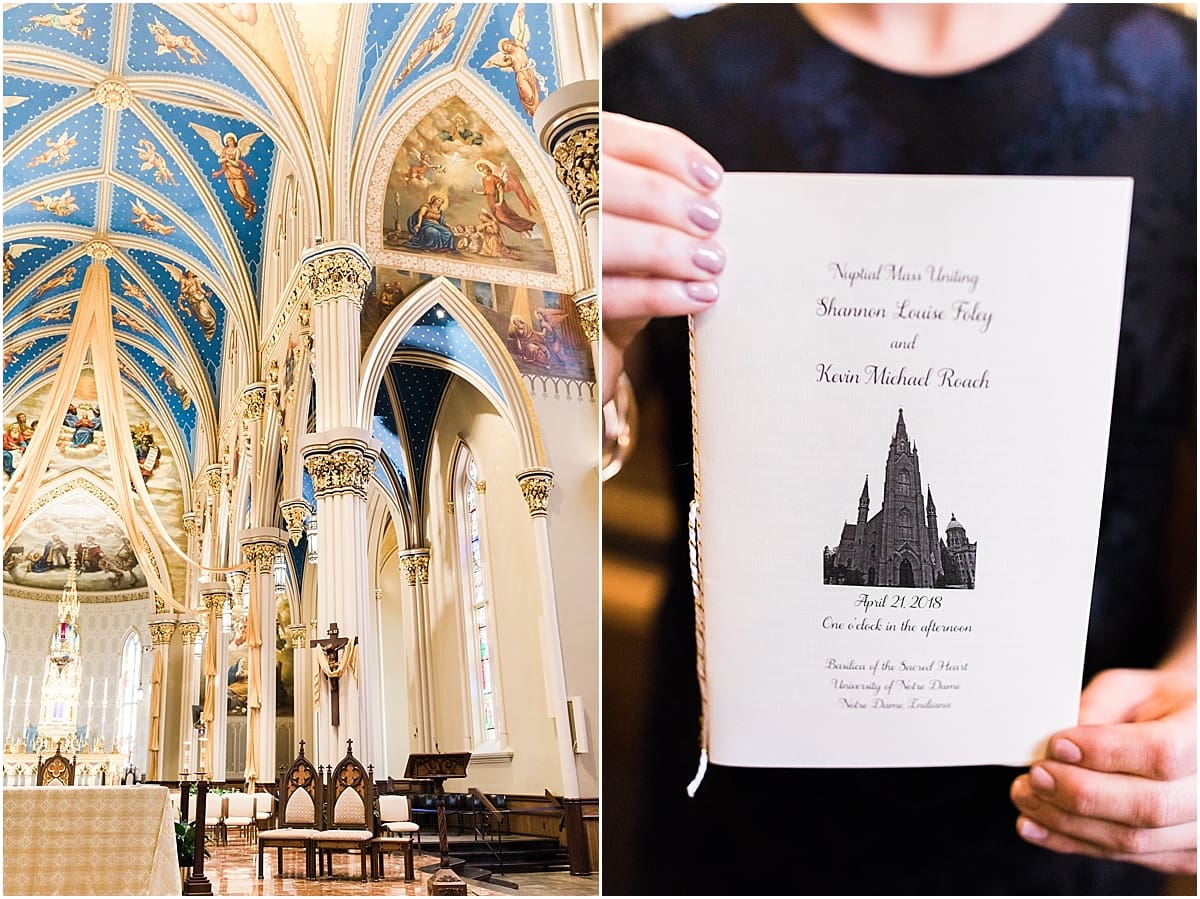 Nuptial Mass Uniting
Shannon Louise Foley
and
Kevin Michael Roach
April 21, 2018
One o'clock in the afternoon
Basilica of the Sacred Heart
University of Notre Dame
Notre Dame, Indiana